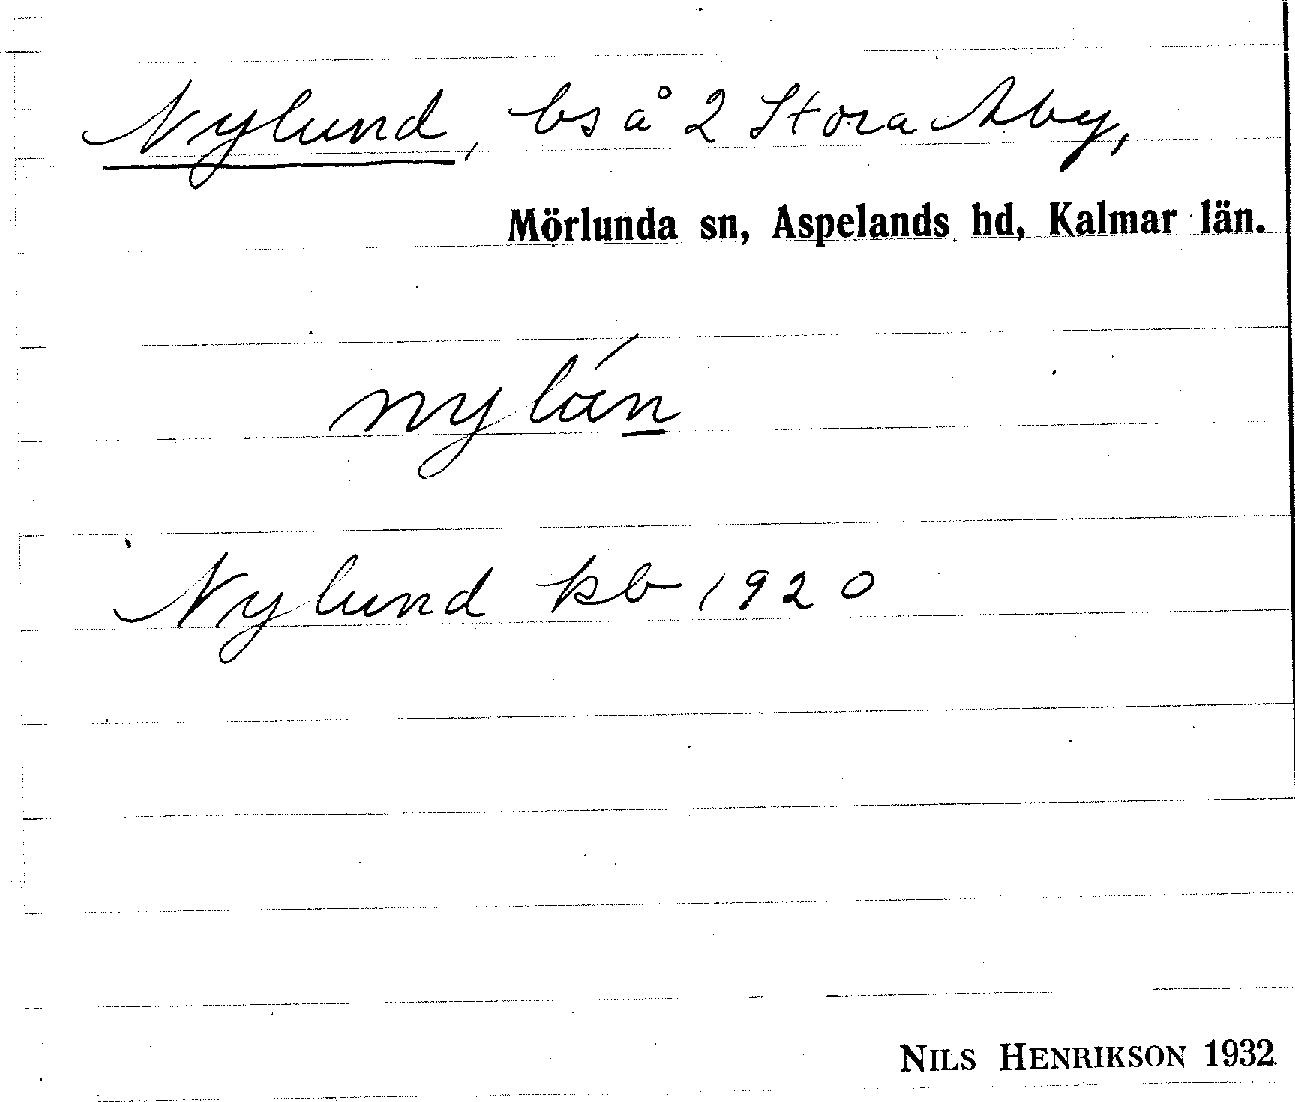 Nylund, bs å 2 Stora Aby,
Mörlunda sn, Aspelands hd, Kalmar län.
Nylund kb 1920
NILS HENRIKSON 1932